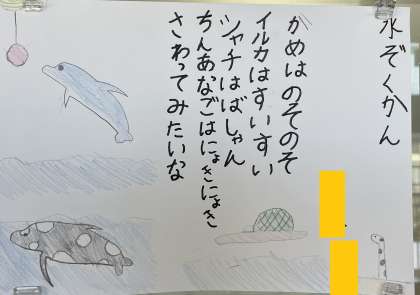 水ぞくかん
かめはのそのそ
イルカはすいすい
シャチはばしゃん
ちんあなごはにょきにょき
さわってみたいな